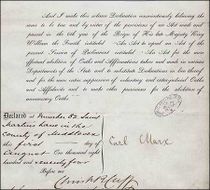 And I make this solemn Declaration conscientiously believing the
same to be true and by virtue of the provisions of an Act made and
passed in the fifth year of the Reign of His late Majesty King
William the Fourth intituled "An Act to repeal an Act of the
present Session of Parliament intituled "An Act for the more
effectual abolition of Oaths and Affirmations taken and made in various
Departments of the State and to substitute Declarations in lieu thereof
for the more entire suppression of voluntary and extrajudicial Oaths
and Affidavits and to make other provisions for the abolition of
unnecessary Oaths."
Declared at Number 82 Saint
Martins Lane in the
County of Middlesex
this first day of
August One thousand eight
hundred and seventy four
Before me
Carl Marx